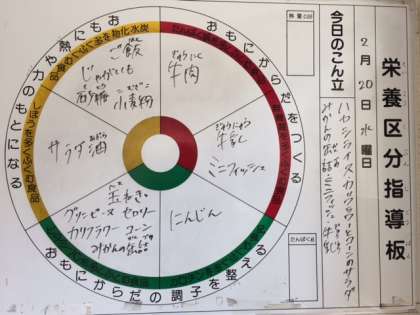 栄養区分指導板
2月20日水曜日
今日のこん立
ハヤシライス、カリフラワーとコーンのサラダ
みかんの缶詰、ミニフィッシュ、牛乳
熱量
たんぱく質
おもにからだをつくる
おもにからだの調子を整える
おもに熱や力のもとになる
炭水化物を多くふくむ食品
しぼうを多くふくむ食品
ご飯
じゃがいも
砂糖
小麦粉
牛肉
ぎゅうにく
牛乳
ぎゅうにゅう
ミニフィッシュ
サラダ油
あぶら
玉ねぎ
グリンピース セロリー
カリフラワー コーン
みかんの缶詰
にんじん